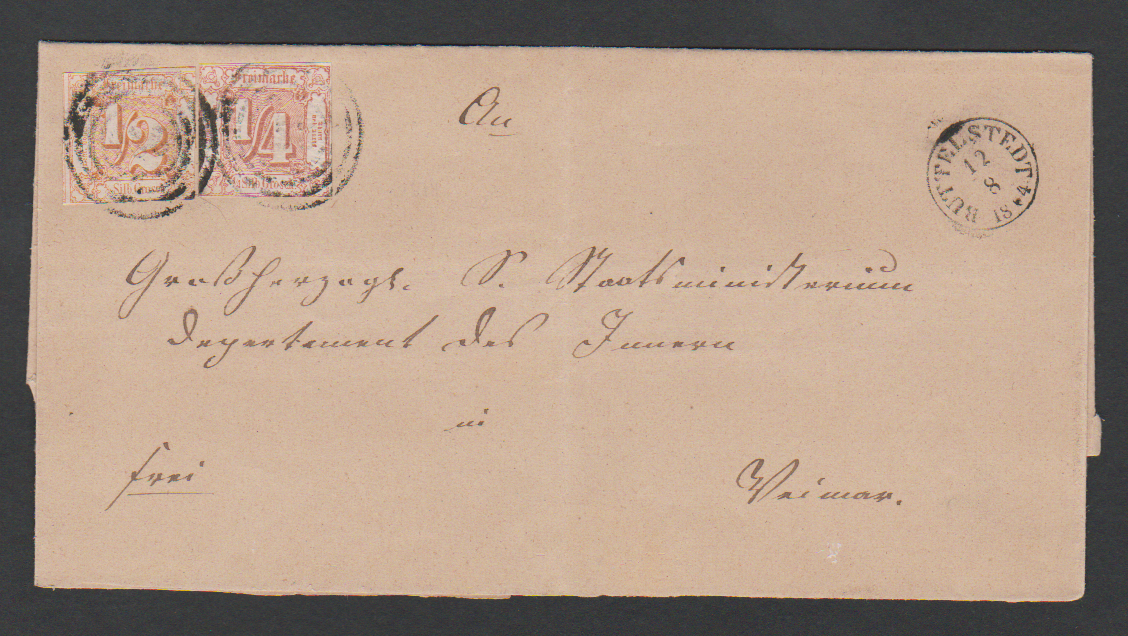 Freimarke
1/2
Silb. Grosch.
Freimarke
1/4
Silb. Grosch.
An
BUTTELSTEDT
12
8
18 * 4
Großherzogl. S. Staatsministerium
Departement des Innern
in
frei
Weimar.